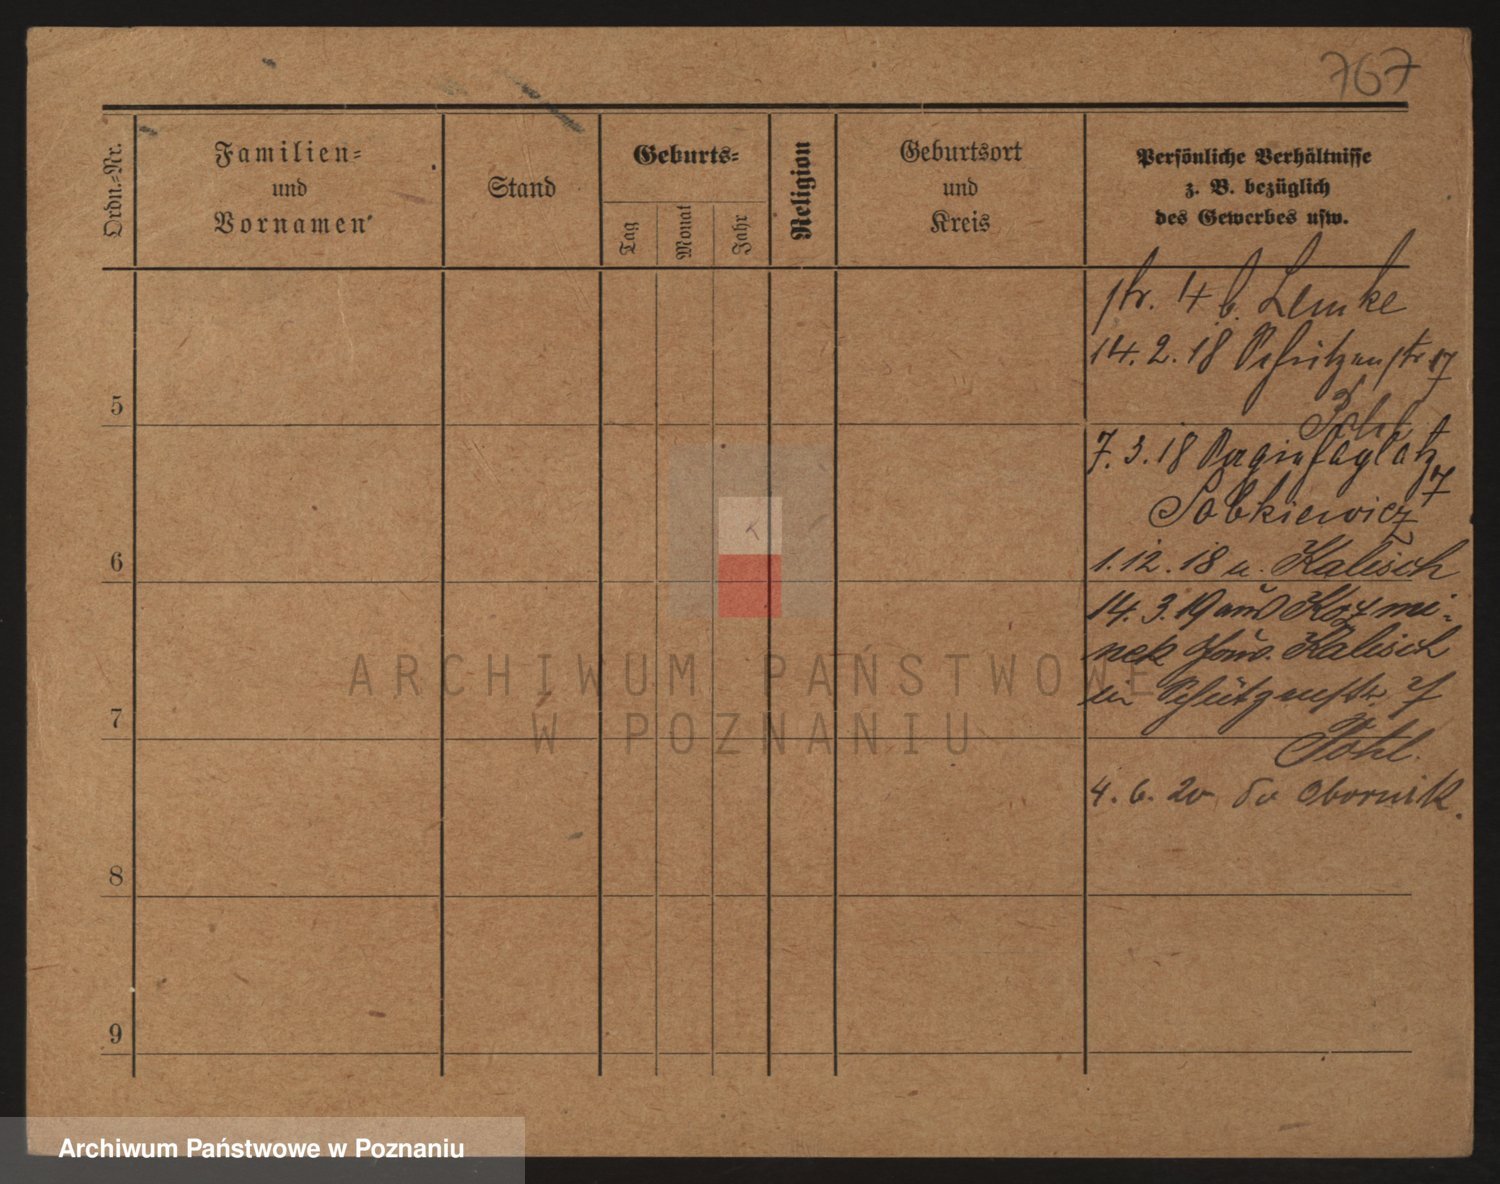 767
Ordn.-Nr.
Familien-
und
Vornamen
Stand
Geburts-
Tag
Monat
Jahr
Religion
Geburtsort
und
Kreis
Persönliche Verhältnisse
z. B. bezüglich
des Gewerbes usw.
str. 4 b. Lemke
14.2.18 Schützenstr 17
5
Pohl
7.3.18
7
Sobkiewicz
6
1.12.18 n. Kalisch
14.3.19 aus Kozmi-
nek Gouv. Kalisch
in Schützenstr.
7
Pohl.
4.6.20 do Obornik.
8
9
ARCHIWUM PAŃSTWOWE
W POZNANIU
Archiwum Państwowe w Poznaniu